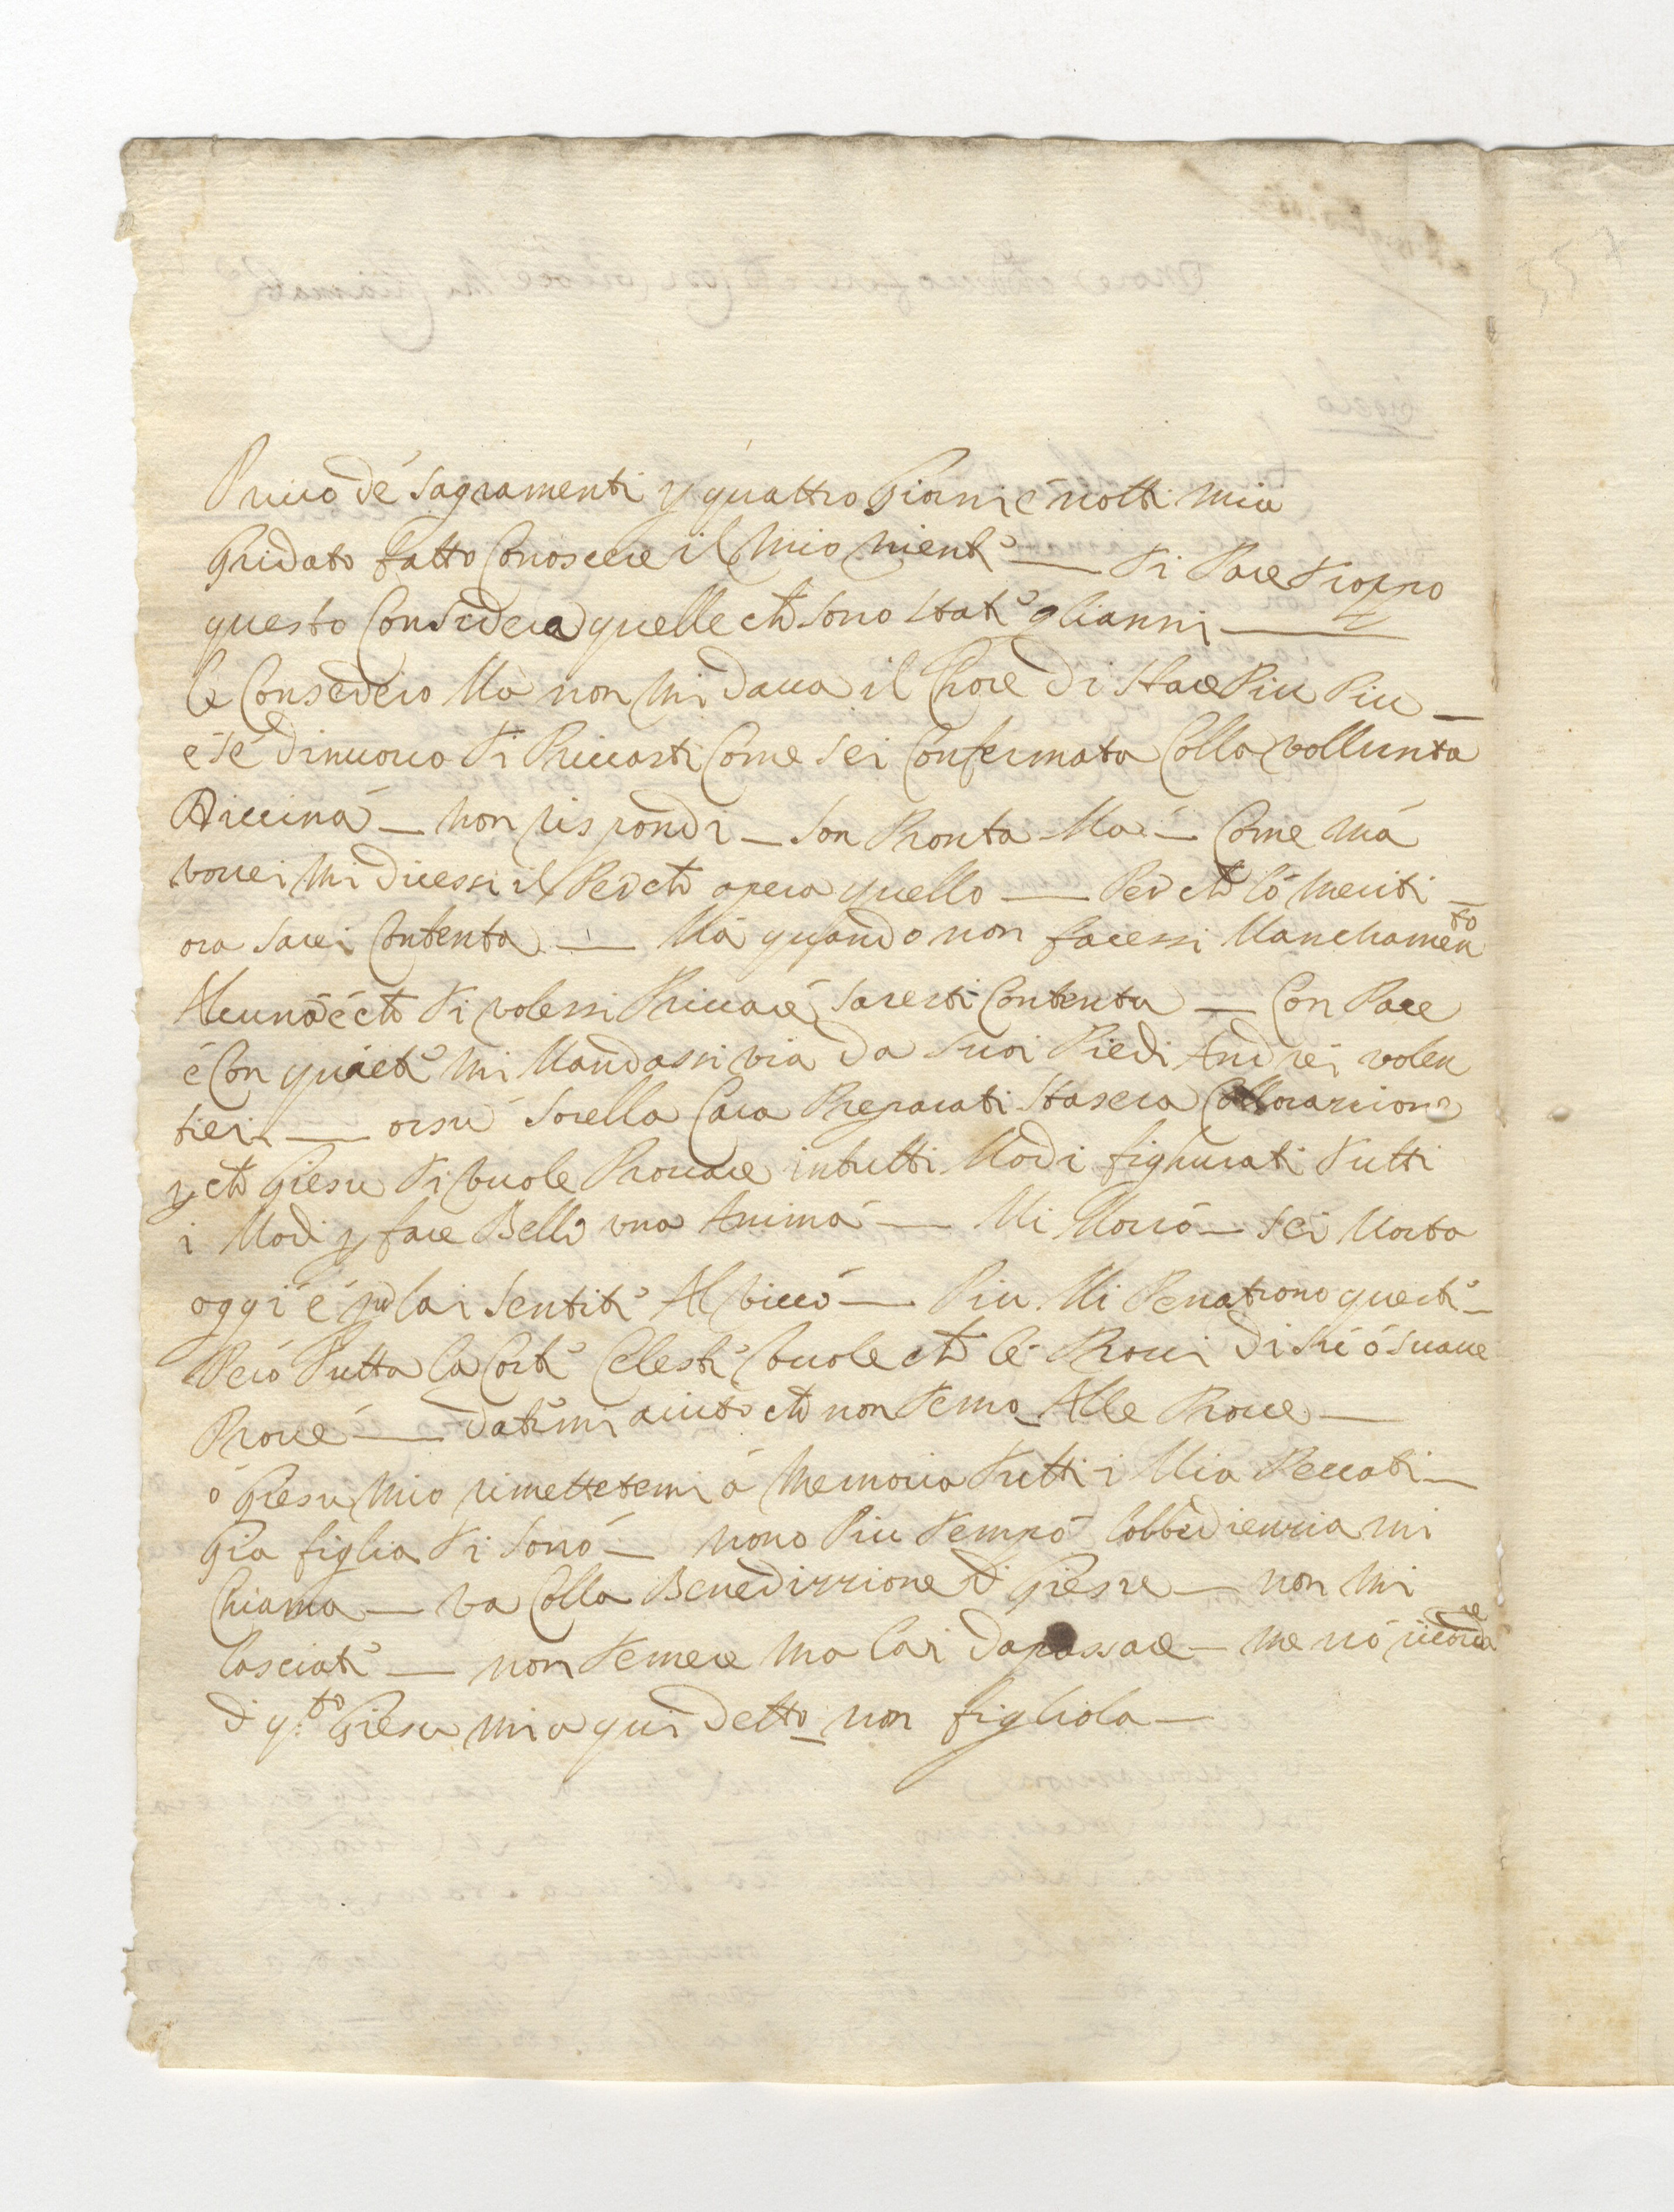 Privo dé Sagramenti p quattro Giorni é notti mia
Gridato fatto Conoscere il Mio nient<sup>e</sup> — Ti Pare Troppo
questo Considera quelle che sono state glianni —
le Considero Ma non Mi dava il Chore di Stare Piu Piu —
é sé dinuovo Ti Privasti Come sei Confermata Colla vollunta
Diviná — non rispondi — son Pronta Ma — Come má
vorrei Mi dicessi il Perche opera quello — Perche ló meriti —
ora sarei Contenta — Má quando non facessi Manchamento
Alcunó é che Ti volessi Privaré saresti Contenta — Con Pace
é Con quiete Mi Mandassi via da suoi Piedi Andréi volen
tieri — orsu Sorella Cara Preparati Stasera
p che Giesu Ti vuole Provare intutti Modi figurati Tutti
i Modi p fare Bella una Animá — Mi Morró — sei Morta
oggi é p lai sentite Al vivó — Piu Mi Penatrono queste —
Peró Tutta la Corte Celeste vuole che lé Provi di Té ó suave
Prové — datemi aiuto che non Temo Alle Prove —
ó Giesu Mio rimettetemi á Memoria Tutti i Mia Peccati —
Gia figlia Ti sonó — nono Piu Tempó lobbedienzia mi
Chiama — va Colla Benedizzione di Giesu — non Mi
lasciate — non Temere ma lai dapassare — me nó ricordare
di q.to Giesu mi a qui detto non figliola —